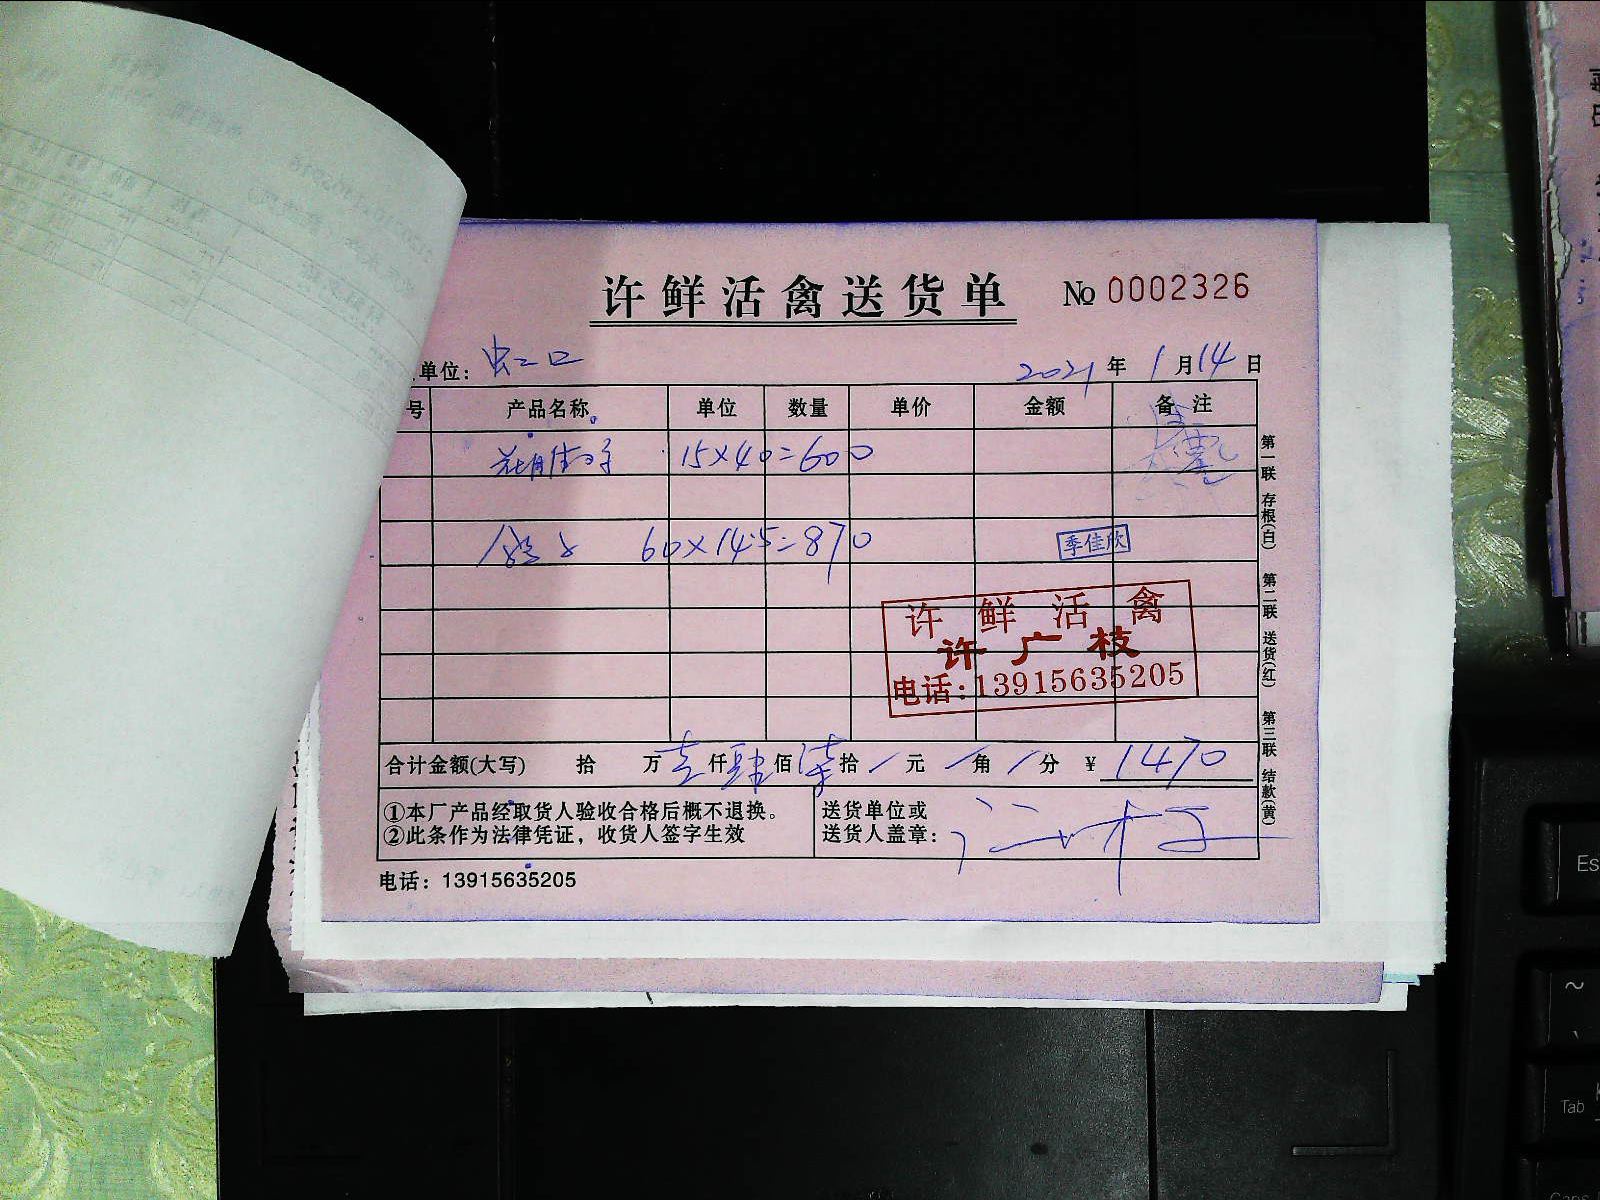 许鲜活禽送货单 № 0002326
单位: 虹口 2021 年 1 月 14 日
号 产品名称 单位 数量 单价 金额 备注
15×40=600
60×14.5=870
季佳欣
许鲜活禽
许广枝
电话:13915635205
合计金额(大写) 拾 万 壹 仟 肆 佰 柒 拾 / 元 / 角 / 分 ¥ 1470
①本厂产品经取货人验收合格后概不退换。
②此条作为法律凭证，收货人签字生效
送货单位或
送货人盖章:
电话: 13915635205
第一联 存根(白) 第二联 送货(红) 第三联 结款(黄)
Es
~
Tab